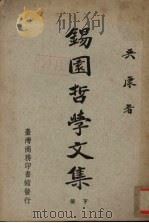 吳康著
錫園哲學文集
下冊
臺灣商務印書館發行